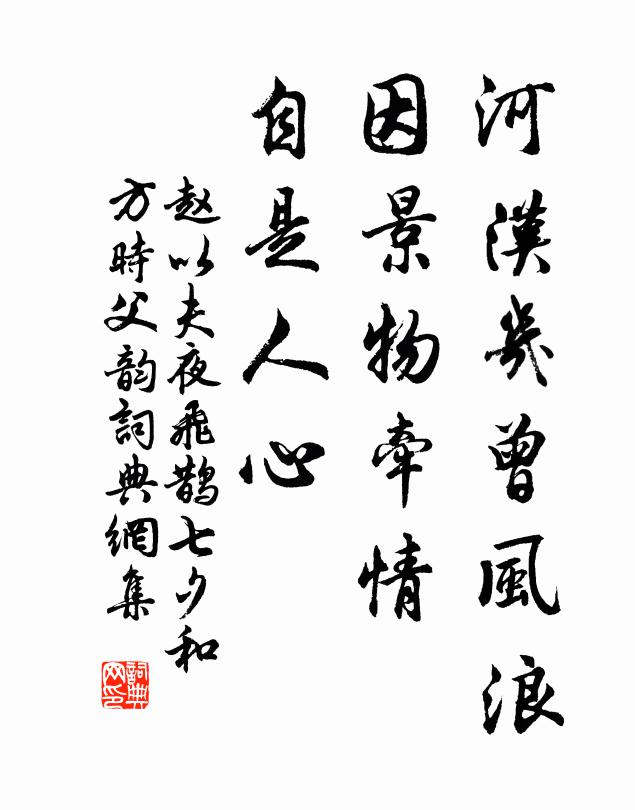 河漢幾曾風浪
因景物牽情
自是人心
赵以夫夜飛鵲七夕和
方時父韵詞典網集
詞典網印